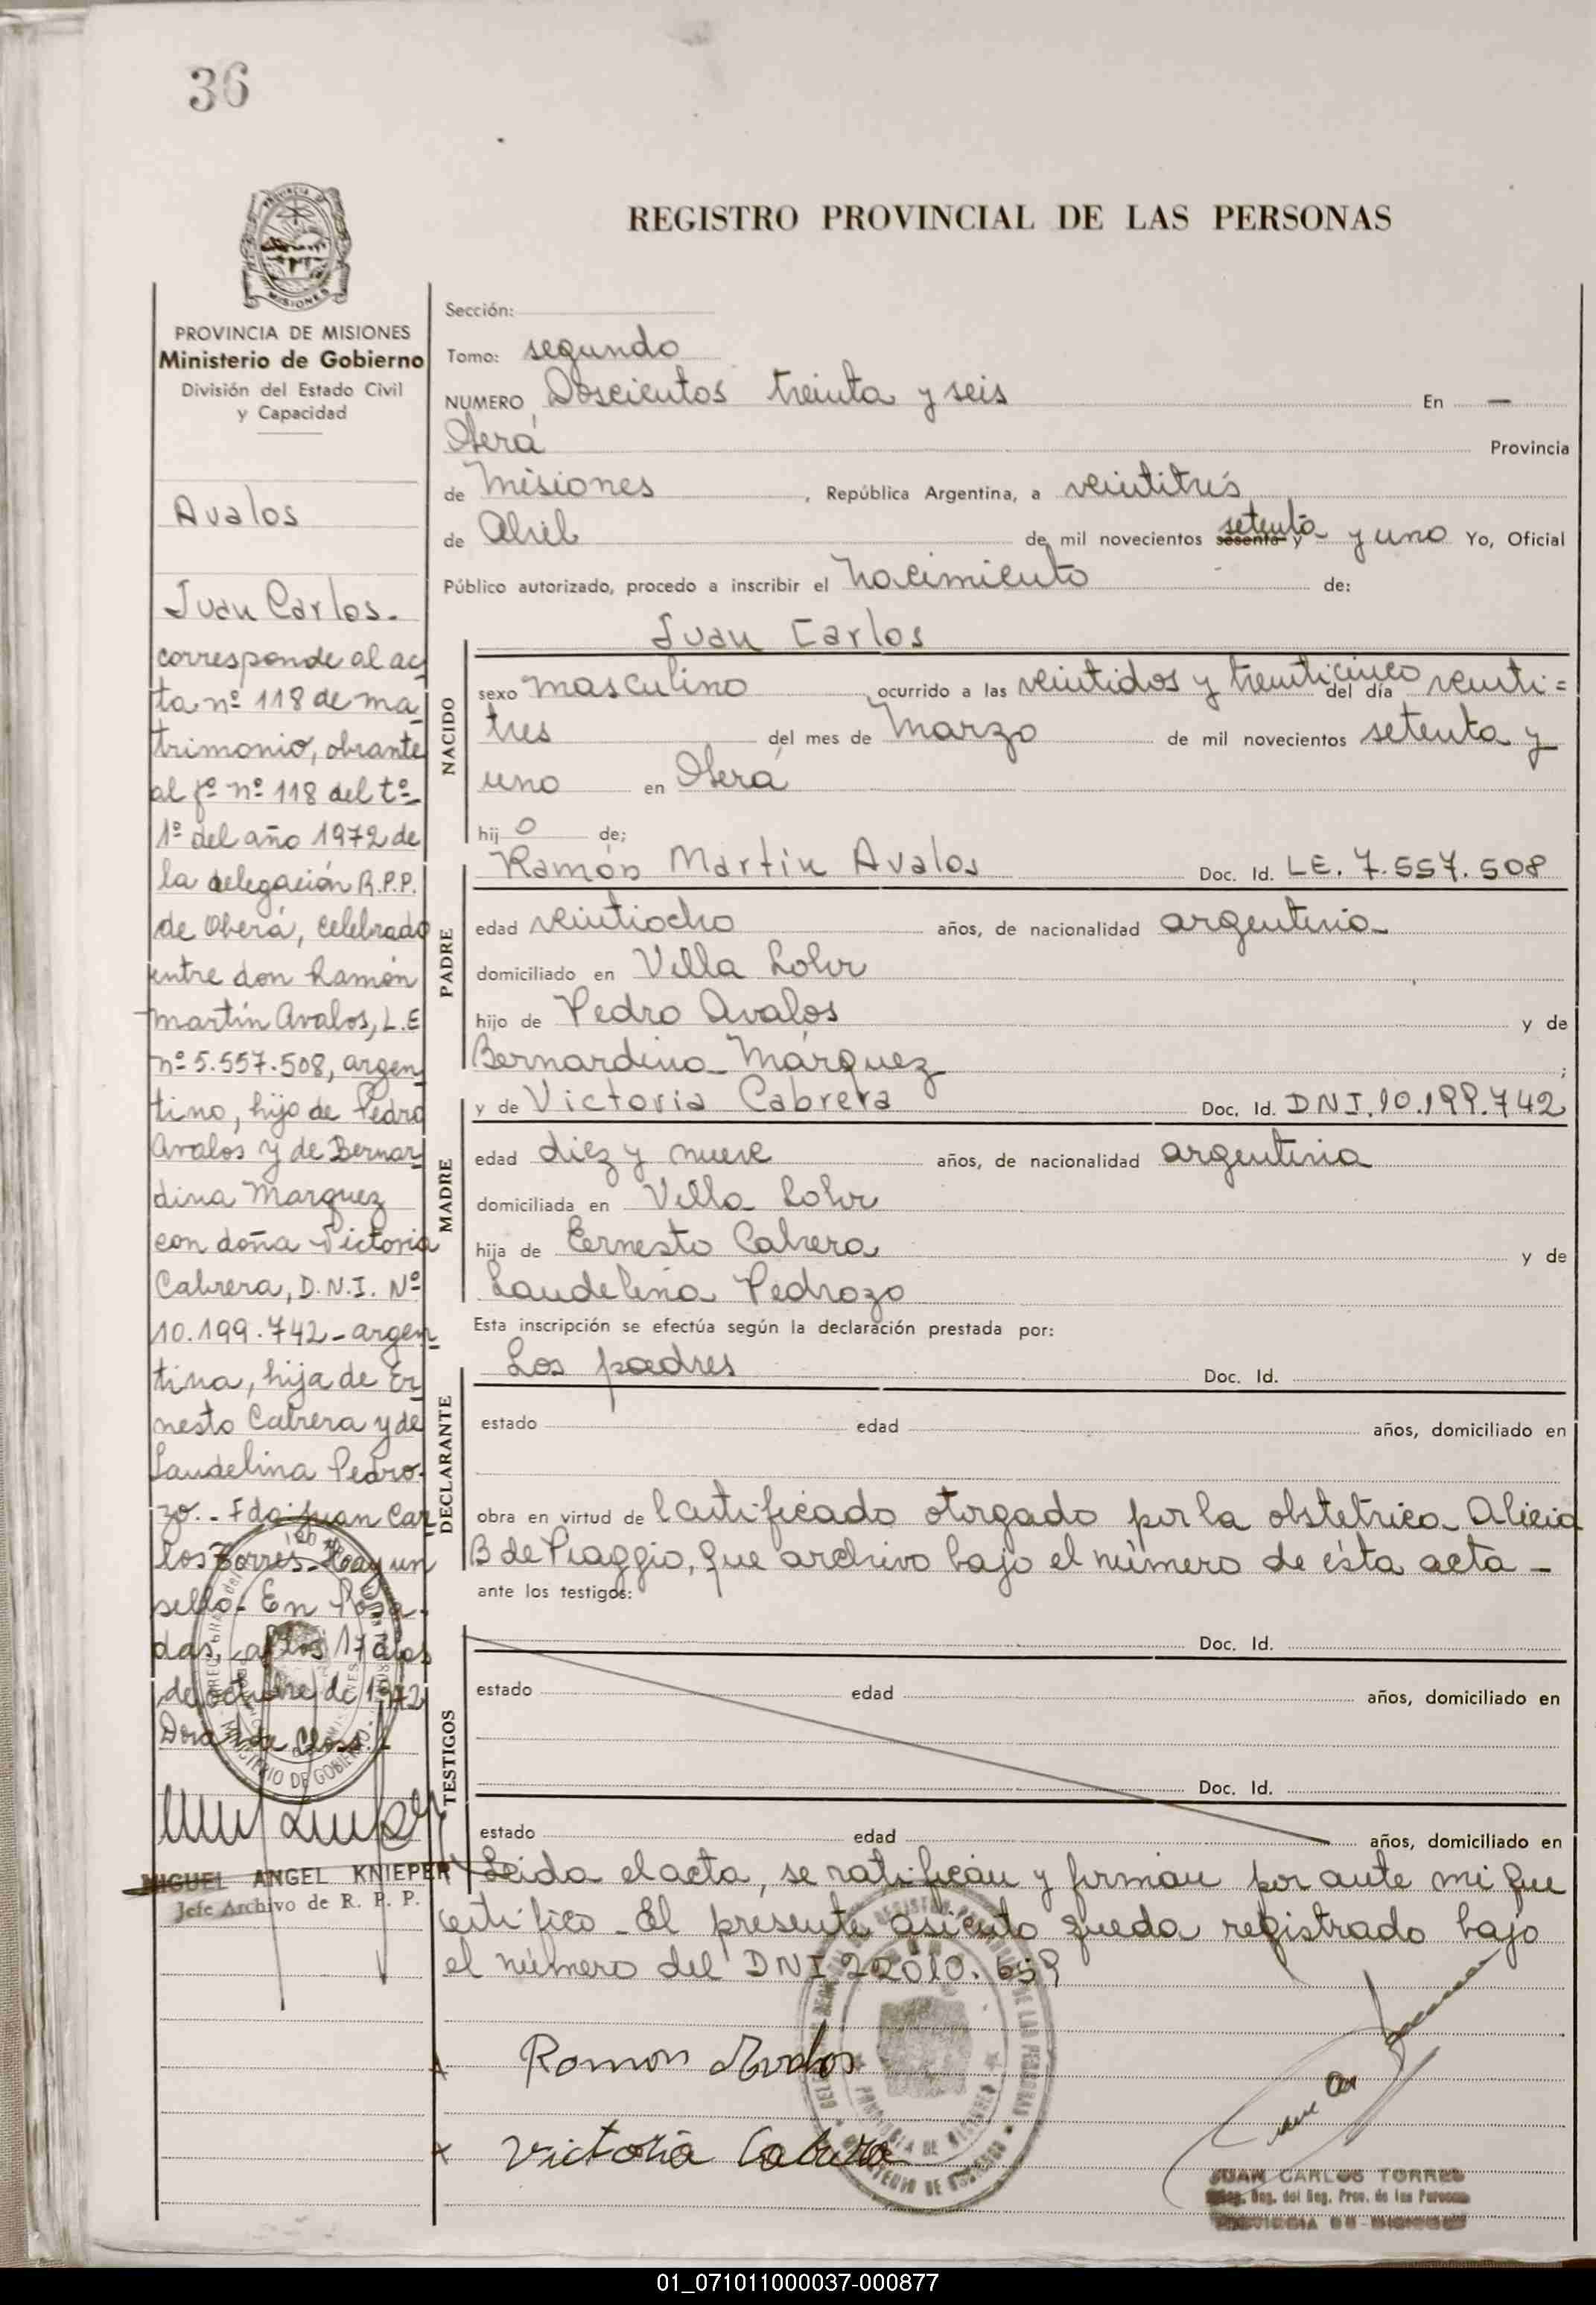 36
REGISTRO PROVINCIAL DE LAS PERSONAS
PROVINCIA DE MISIONES
Ministerio de Gobierno
División del Estado Civil
y Capacidad
Avalos
Juan Carlos.-
corresponde al ac-
ta nº 118 de ma-
trimonio, obrante
al fº nº 118 del tº-
1º del año 1972 de
la delegación R.P.P.
de Oberá, celebrado
entre don Ramón
Martín Avalos, L.E
nº 5.557.508, argen-
tino, hijo de Pedro
Avalos y de Bernar-
dina Marquez
con doña Victoria
Cabrera, D.N.I. Nº
10.199.742-argen-
tina, hija de Er-
nesto Cabrera y de
Laudelina Pedro-
zo.- Fdo: Juan Car-
los Torres. Hay un
sello.- En Posa-
das, a los 17 días
de octubre de 1972
MIGUEL ANGEL KNIEPER
Jefe Archivo de R. P. P.
Sección:
Tomo: segundo
NUMERO Doscientos treinta y seis En —
Oberá Provincia
de Misiones, República Argentina, a veintitrés
de Abril de mil novecientos sesenta y setenta y uno Yo, Oficial
Público autorizado, procedo a inscribir el Nacimiento de:
Juan Carlos
NACIDO
sexo masculino ocurrido a las veintidos y treinticinco del día veinti=
tres del mes de Marzo de mil novecientos setenta y
uno en Oberá
hij o de;
PADRE
Ramón Martin Avalos Doc. Id. LE. 7.557.508
edad veintiocho años, de nacionalidad argentina
domiciliado en Villa Lohr
hijo de Pedro Avalos y de
Bernardina Márquez ;
MADRE
y de Victoria Cabrera Doc. Id. DNI.10.199.742
edad diez y nueve años, de nacionalidad argentina
domiciliada en Villa Lohr
hija de Ernesto Cabrera y de
Laudelina Pedrozo
Esta inscripción se efectúa según la declaración prestada por:
DECLARANTE
Los padres Doc. Id.
estado edad años, domiciliado en
obra en virtud de Certificado otorgado por la obstetrica Alicia
B de Piaggio, que archivo bajo el número de ésta acta -
ante los testigos:
TESTIGOS
Doc. Id.
estado edad años, domiciliado en
Doc. Id.
estado edad años, domiciliado en
Leida el acta, se ratifican y firman por ante mi que
certifico - El presente asiento queda registrado bajo
el número del DNI 22010.659
Ramon Avalos
Victoria Cabrera
JUAN CARLOS TORRES
01_071011000037-000877